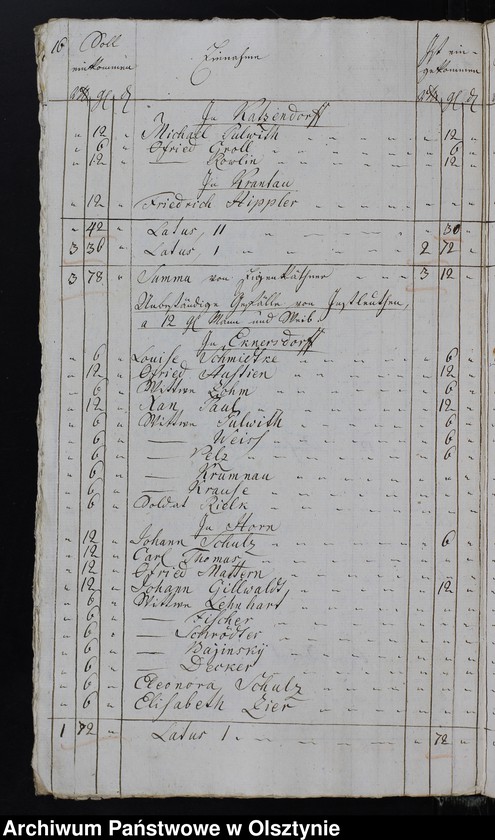 16 Soll Einnahme Ist ein-
einkommen gekommen
rth gl d rth gl d
In Katzendorff
" 12 " Michael Sulwith " 12 "
" 6 " Gfried Groll " 6 "
" 12 " — Rowlin " 12 "
In Krantau
" 12 " Friedrich Hippler
" 42 " Latus, II " 30 "
3 36 " Latus, I 2 72 "
3 78 " Summa von Eigenkäthner 3 12 "
Unbeständige Gefälle von Instleuthen,
a 12 gl Mann und Weib.
In Eknersdorff
" 6 " Louise Schmidtke " 6 "
" 12 " Gfried Austien " 12 "
" 6 " Wittwe Böhm " 6 "
" 12 " Paul " 12 "
" 6 " Wittwe Sulwith " 6 "
" 6 " — Weiss " 6 "
" 6 " — Pelz " 6 "
" 6 " — Krumnau
" 6 " — Krause
" 6 " Soldat Rielk
In Horn
" 12 " Johann Schulz " 6 "
" 12 " Carl Thomas
" 12 " Gfried Mattern
" 12 " Johann Gillwaldt " 12 "
" 6 " Wittwe Lehnhart
" 6 " — Fischer
" 6 " — Schrödter
" 6 " — Bajinsky
" 6 " — Decker
" 6 " Eleonora Schulz
" 6 " Elisabeth Lier
1 72 " Latus I " 72 "
Archiwum Państwowe w Olsztynie